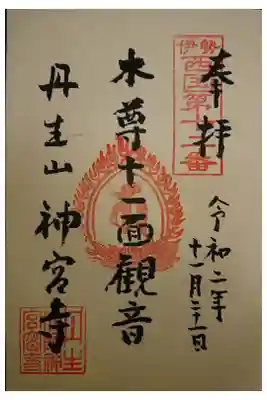 奉拝
伊勢
西国第十二番
令和二年
十一月二十一日
本尊十一面觀音
丹生山 神宮寺